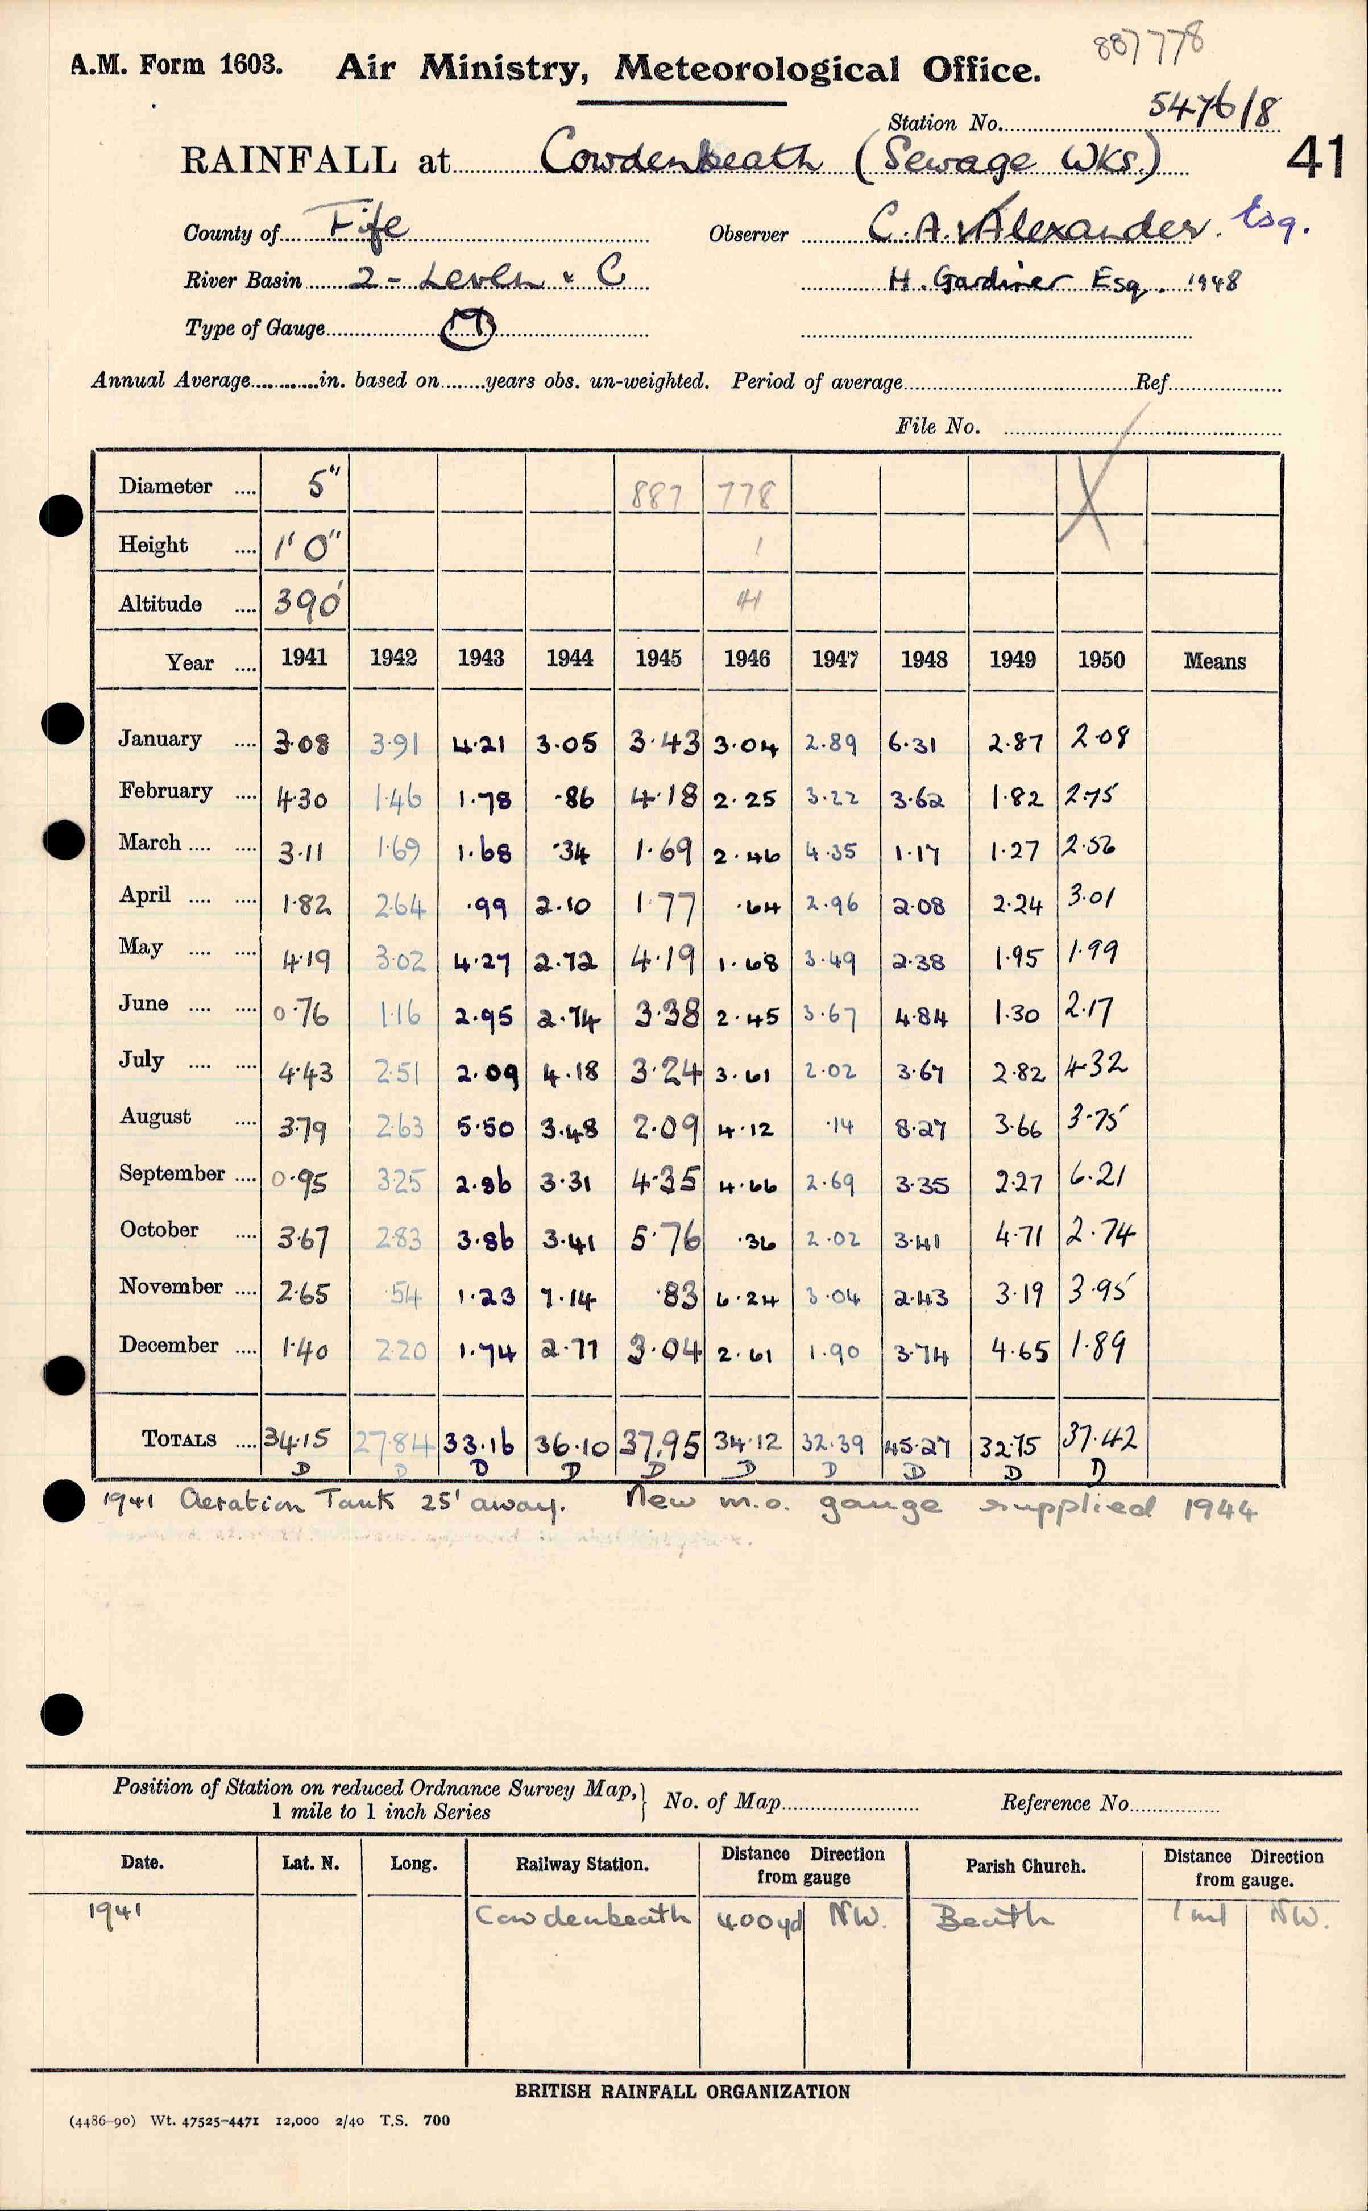 887778
A.M. Form 1603. Air Ministry, Meteorological Office.
Station No. 5476/8
RAINFALL at Cowdenbeath (Sewage Wks.) 41
County of Fife Observer C.A. Alexander. Esq.
River Basin 2 - Leven & C H. Gardiner Esq. 1948
Type of Gauge M
Annual Average in. based on years obs. un-weighted. Period of average Ref
File No.
Diameter 5" 887 778 X
Height 1' 0" 1
Altitude 390' 41
Year 1941 1942 1943 1944 1945 1946 1947 1948 1949 1950 Means
January 3.08 3.91 4.21 3.05 3.43 3.04 2.89 6.31 2.87 2.08
February 4.30 1.46 1.78 .86 4.18 2.25 3.22 3.62 1.82 2.75
March 3.11 1.69 1.68 .34 1.69 2.46 4.35 1.17 1.27 2.56
April 1.82 2.64 .99 2.10 1.77 .64 2.96 2.08 2.24 3.01
May 4.19 3.02 4.27 2.72 4.19 1.68 3.49 2.38 1.95 1.99
June 0.76 1.16 2.95 2.74 3.38 2.45 3.67 4.84 1.30 2.17
July 4.43 2.51 2.09 4.18 3.24 3.61 2.02 3.67 2.82 4.32
August 3.79 2.63 5.50 3.48 2.09 4.12 .14 8.27 3.66 3.75
September 0.95 3.25 2.86 3.31 4.35 4.66 2.69 3.35 2.27 6.21
October 3.67 2.83 3.86 3.41 5.76 .36 2.02 3.41 4.71 2.74
November 2.65 .54 1.23 7.14 .83 6.24 3.04 2.43 3.19 3.95
December 1.40 2.20 1.74 2.77 3.04 2.61 1.90 3.74 4.65 1.89
TOTALS 34.15 27.84 33.16 36.10 37.95 34.12 32.39 45.27 32.75 37.42
D D D D D D D D D D
1941 Aeration Tank 25' away. New m.o. gauge supplied 1944
Position of Station on reduced Ordnance Survey Map, 1 mile to 1 inch Series } No. of Map Reference No.
Date. Lat. N. Long. Railway Station. Distance Direction from gauge Parish Church. Distance Direction from gauge.
1941 Cowdenbeath 400yd NW. Beath 1 ml NW.
BRITISH RAINFALL ORGANIZATION
(4486-90) Wt. 47525-4471 12,000 2/40 T.S. 700